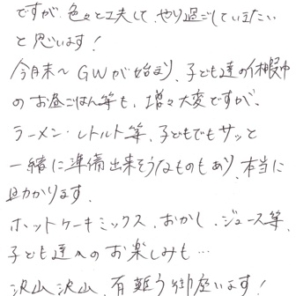 ですが、色々と工夫して、やり過ごしていきたい
と思います!
今月末〜GWが始まり、子ども達の休暇中
のお昼ごはん等も、増々大変ですが、
ラーメン・レトルト等、子どもでもサッと
一緒に準備出来そうなものもあり、本当に
助かります。
ホットケーキミックス、おかし、ジュース等、
子ども達へのお楽しみも…
沢山沢山、有難う御座います!